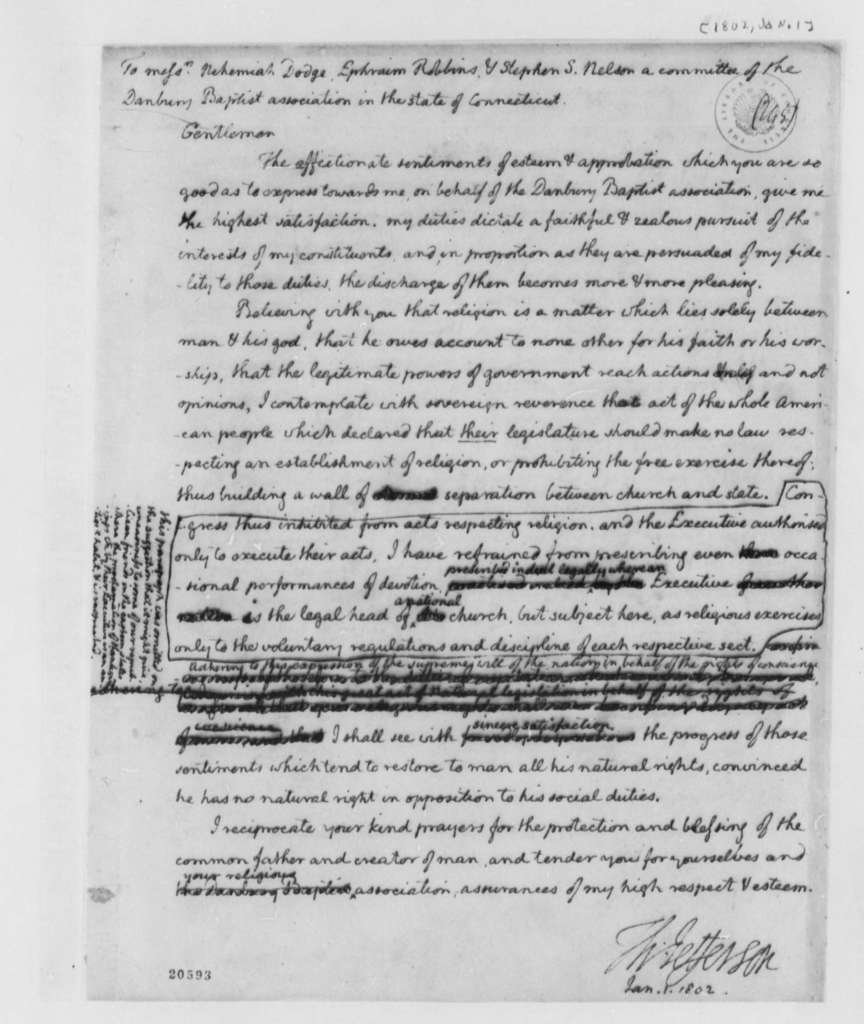 [1802, Jan. 1]
To messrs. Nehemiah Dodge, Ephraim Robbins, & Stephen S. Nelson a committee of the
Danbury Baptist association in the state of Connecticut.
Gentlemen
The affectionate sentiments of esteem & approbation which you are so
good as to express towards me, on behalf of the Danbury Baptist association, give me
the highest satisfaction. my duties dictate a faithful & zealous pursuit of the
interests of my constituents, and in proportion as they are persuaded of my fide-
-lity to those duties, the discharge of them becomes more & more pleasing.
Believing with you that religion is a matter which lies solely between
man & his god, that he owes account to none other for his faith or his wor-
-ship, that the legitimate powers of government reach actions only and not
opinions, I contemplate with sovereign reverence that act of the whole Ameri-
-can people which declared that their legislature should make no law res-
-pecting an establishment of religion, or prohibiting the free exercise thereof;
thus building a wall of eternal separation between church and state. Con-
-gress thus inhibited from acts respecting religion, and the Executive authorised
only to execute their acts, I have refrained from prescribing even those occa-
prescribed indeed legally where an
-sional performances of devotion, Executive
a national
is the legal head of church, but subject here, as religious exercises
only to the voluntary regulations and discipline of each respective sect.
adhering to this expression of the supreme will of the nation in behalf of the rights of conscience
adhering to
I shall see with sincere satisfaction the progress of those
sentiments which tend to restore to man all his natural rights, convinced
he has no natural right in opposition to his social duties.
I reciprocate your kind prayers for the protection and blessing of the
common father and creator of man, and tender you for yourselves and
your religious
the Danbury Baptist association, assurances of my high respect & esteem.
Th: Jefferson
Jan. 1. 1802.
20593
this paragraph was omitted on
the suggestion that it might give
uneasiness to some of our republican friends in the eastern states